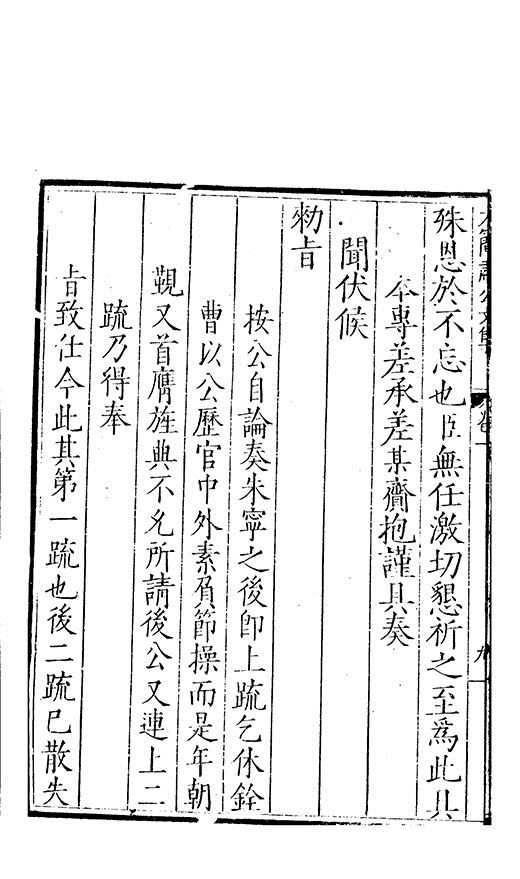 殊恩於不忘也臣無任激切懇祈之至爲此具
本專差承差某齎抱謹具奏
聞伏候
勑旨
按公自論奏朱寧之後卽上疏乞休銓
曹以公歷官中外素負節操而是年朝
覲又首膺旌典不允所請後公又連上二
疏乃得奉
旨致仕今此其第一疏也後二疏已散失
卷一
九